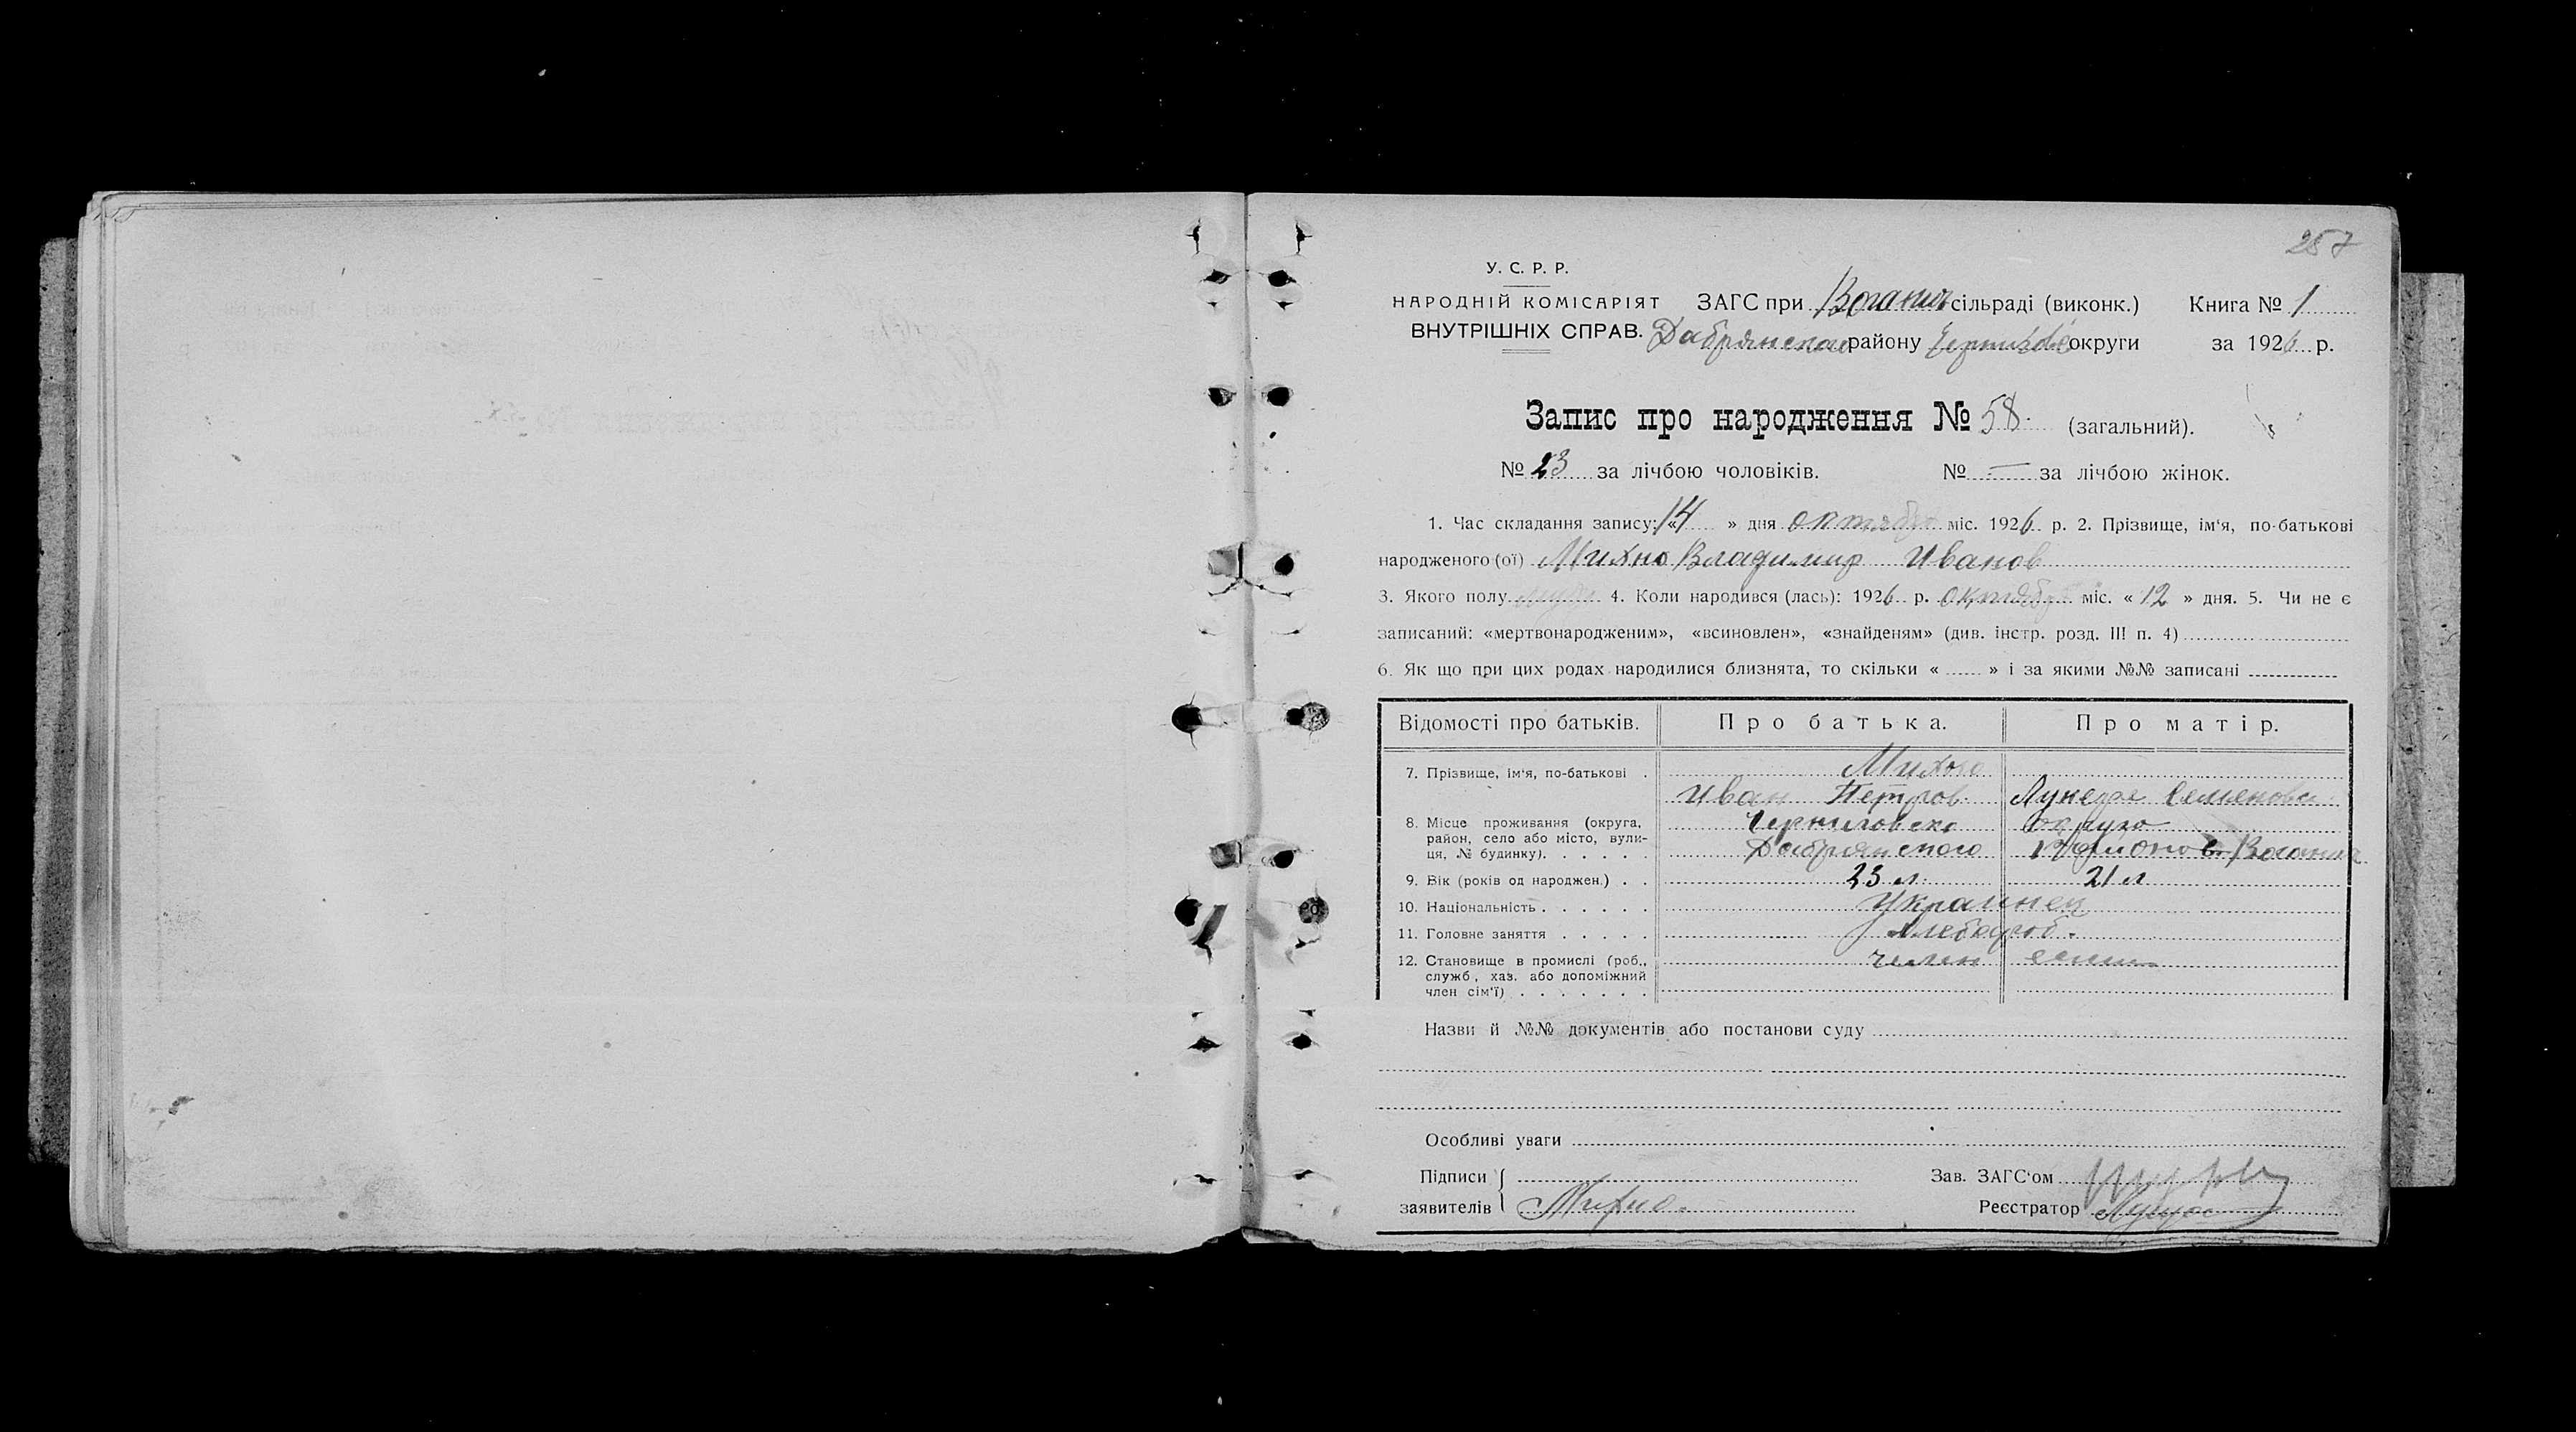 257
У. С. Р. Р.
НАРОДНІЙ КОМІСАРІЯТ ЗАГС при сільраді (виконк.) Книга № 1
ВНУТРІШНІХ СПРАВ. Дабрянского району округи за 1926 р.
Запис про народження № 58 (загальний).
№ 23 за лічбою чоловіків. № — за лічбою жінок.
1. Час складання запису: «14» дня октября міс. 1926 р. 2. Прізвище, ім'я, по-батькові
народженого (ої) Михно Владимир Иванов
3. Якого полу 4. Коли народився (лась): 1926 р. октября міс. « 12 » дня. 5. Чи не є
записаний: «мертвонародженим», «всиновлен», «знайденям» (див. інстр. розд. III п. 4)
6. Як що при цих родах народилися близнята, то скільки « » і за якими №№ записані
Відомості про батьків. Про батька. Про матір.
7. Прізвище, ім'я, по-батькові . Михно
Иван Петров
8. Місце проживання (округа, район, село або місто, вулиця, № будинку). Черниговско округа
Дабрянского
9. Вік (років од народжен.) . . 23 л. 21 л
10. Національність . . . . . . Украинец
11. Головне заняття . . . . . Хлебороб.
12. Становище в промислі (роб.,
служб, хаз. або допоміжний
член сім'ї) . . . . . . .
Назви й №№ документів або постанови суду
Особливі уваги
Підписи Зав. ЗАГС'ом
заявителів Михно. Реєстратор